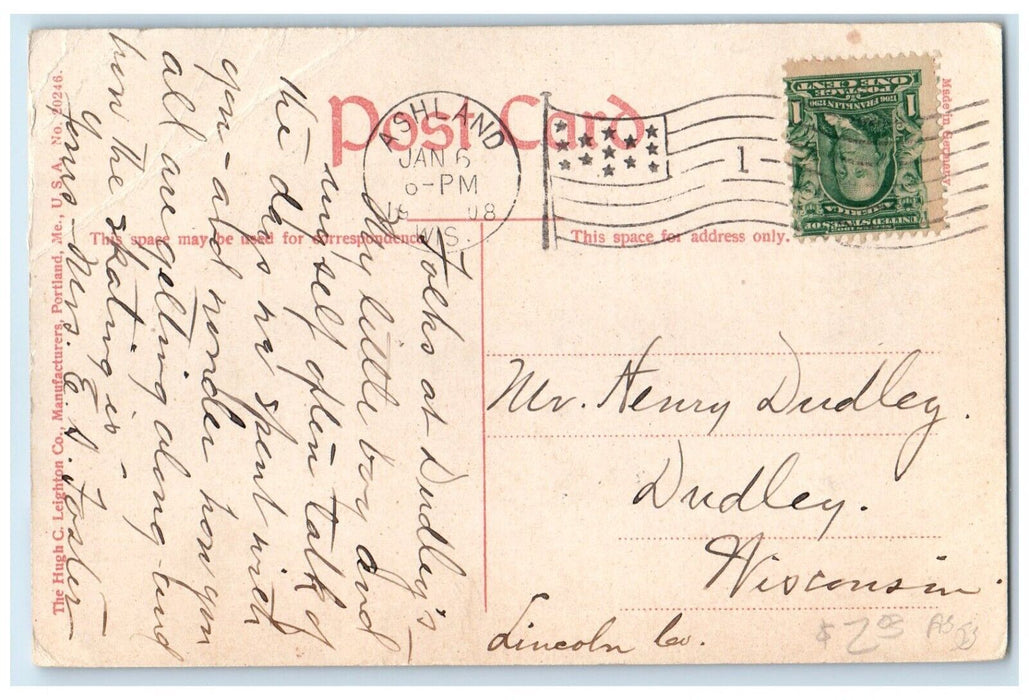 Post Card
ASHLAND
JAN 6
6-PM
08
WIS.
1
UNITED STATES OF AMERICA
1706 FRANKLIN 1790
POSTAGE
ONE CENT
1 1
Made in Germany.
This space may be used for correspondence.
This space for address only.
The Hugh C. Leighton Co., Manufacturers, Portland, Me., U. S. A. No. 20246.
Folks at Dudley's
My little boy and
myself often talk of
the days we spent with
you - and wonder how you
all are getting along - and
how the skating is -
Yours - Mrs. E. J. Foster -
Mr. Henry Dudley.
Dudley.
Wisconsin.
Lincoln Co.
$2.08